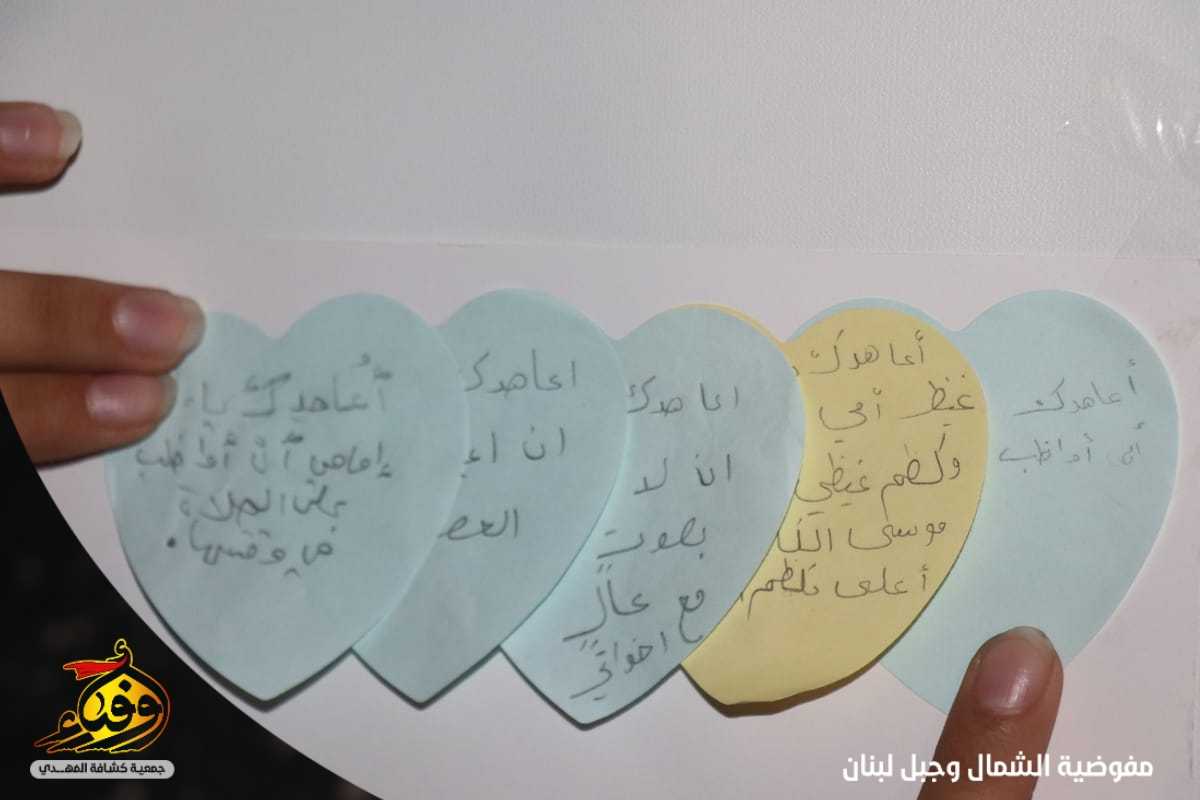 أعاهدك
أني أواظب
أعاهدك
غيظ أمي
وكظم غيظي
موسى
أعلى
اعاهدك
ان لا
بصوت
عالٍ مع
اخواتي
اعاهدك
ان
أُعاهدك يا
إمامي أن أواظب
على الصلاة
في وقتها.
وفاء
جمعية كشافة المهدي
مفوضية الشمال وجبل لبنان